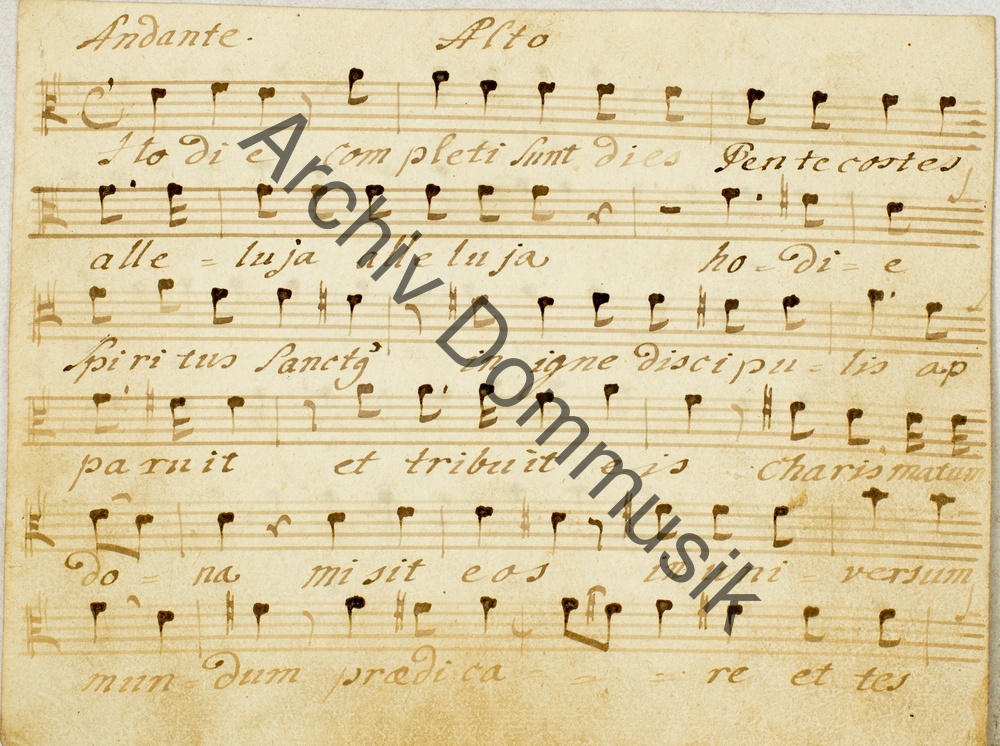 Andante. Alto
Hodie completi sunt dies Pentecostes
alle = luja alleluja ho - di - e
Spiritus Sanctꝰ in igne discipu - lis ap
paruit et tribuit eis charismatum
do = na misit eos in uni - versum
mun - dum prædica - - - re et tes
Archiv Dommusik